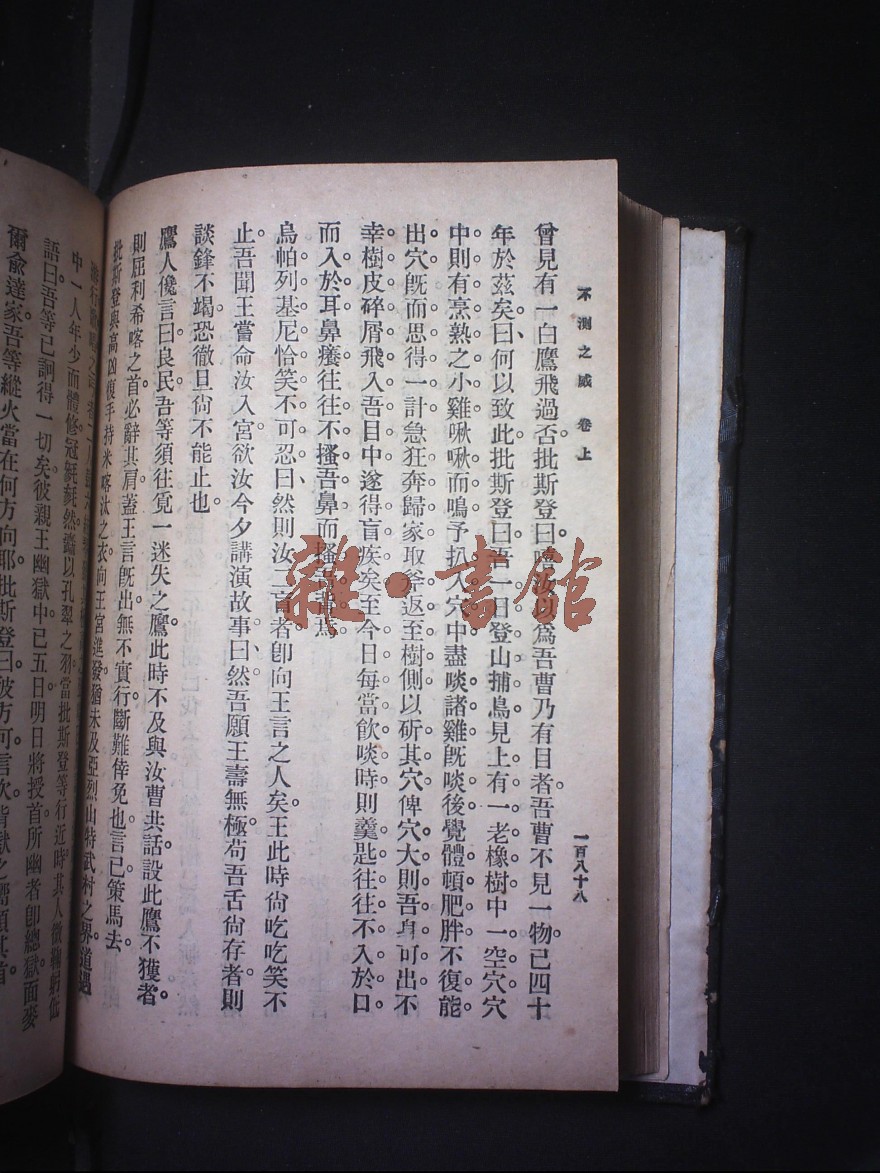 不測之威 卷上
一百八十八
曾見有一白鷹飛過否。批斯登曰。嘻。汝以爲吾曹乃有目者。吾曹不見一物。已四十
年於茲矣。曰、何以致此。批斯登曰。吾一日登山捕鳥。見上有一老橡樹。中一空穴。穴
中則有烹熟之小雞。啾啾而鳴。予扒入穴中。盡啖諸雞。旣啖後。覺體頓肥胖。不復能
出穴。旣而思得一計。急狂奔歸家取斧。返至樹側。以斫其穴。俾穴大則吾身可出。不
幸樹皮碎屑。飛入吾目中。遂得盲疾矣。至今日每當飮啖時。則羹匙往往不入於口。
而入於耳。鼻癢往往不搔吾鼻。而搔吾耳焉。
烏帕列基尼恰笑不可忍曰。然則汝二言者卽向王言之人矣。王此時尙吃吃笑不
止。吾聞王嘗命汝入宮。欲汝今夕講演故事。曰、然。吾願王壽無極。苟吾舌尙存者。則
談鋒不竭。恐徹旦尙不能止也。
鷹人儳言曰。良民。吾等須往覓一迷失之鷹。此時不及與汝曹共話。設此鷹不獲者。
則屈利希喀之首。必辭其肩。蓋王言旣出。無不實行。斷難倖免也。言已策馬去。
批斯登與高凶復手持米喀汰之衣。向王宮進發。猶未及亞烈山特武村之界。道遇
中一人年少而體修。冠毿毿然。蓋以孔翠之羽。當批斯登等行近時。其人微鞠躬低
語曰。吾等已詗得一切矣。彼親王幽獄中已五日。明日將授首。所幽者卽總獄。面麥
爾俞達家。吾等縱火當在何方向耶。批斯登曰。彼方。可言次。
雜·書館